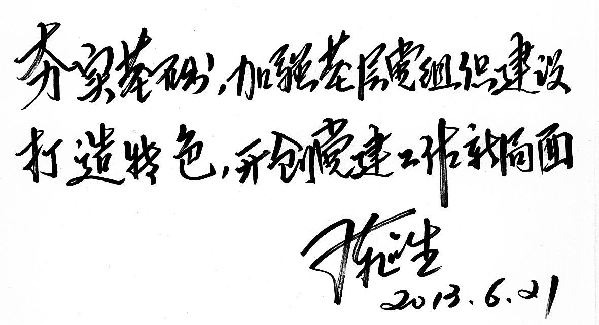 夯实基础,加强基层党组织建设
打造特色,开创党建工作新局面
2013.6.21